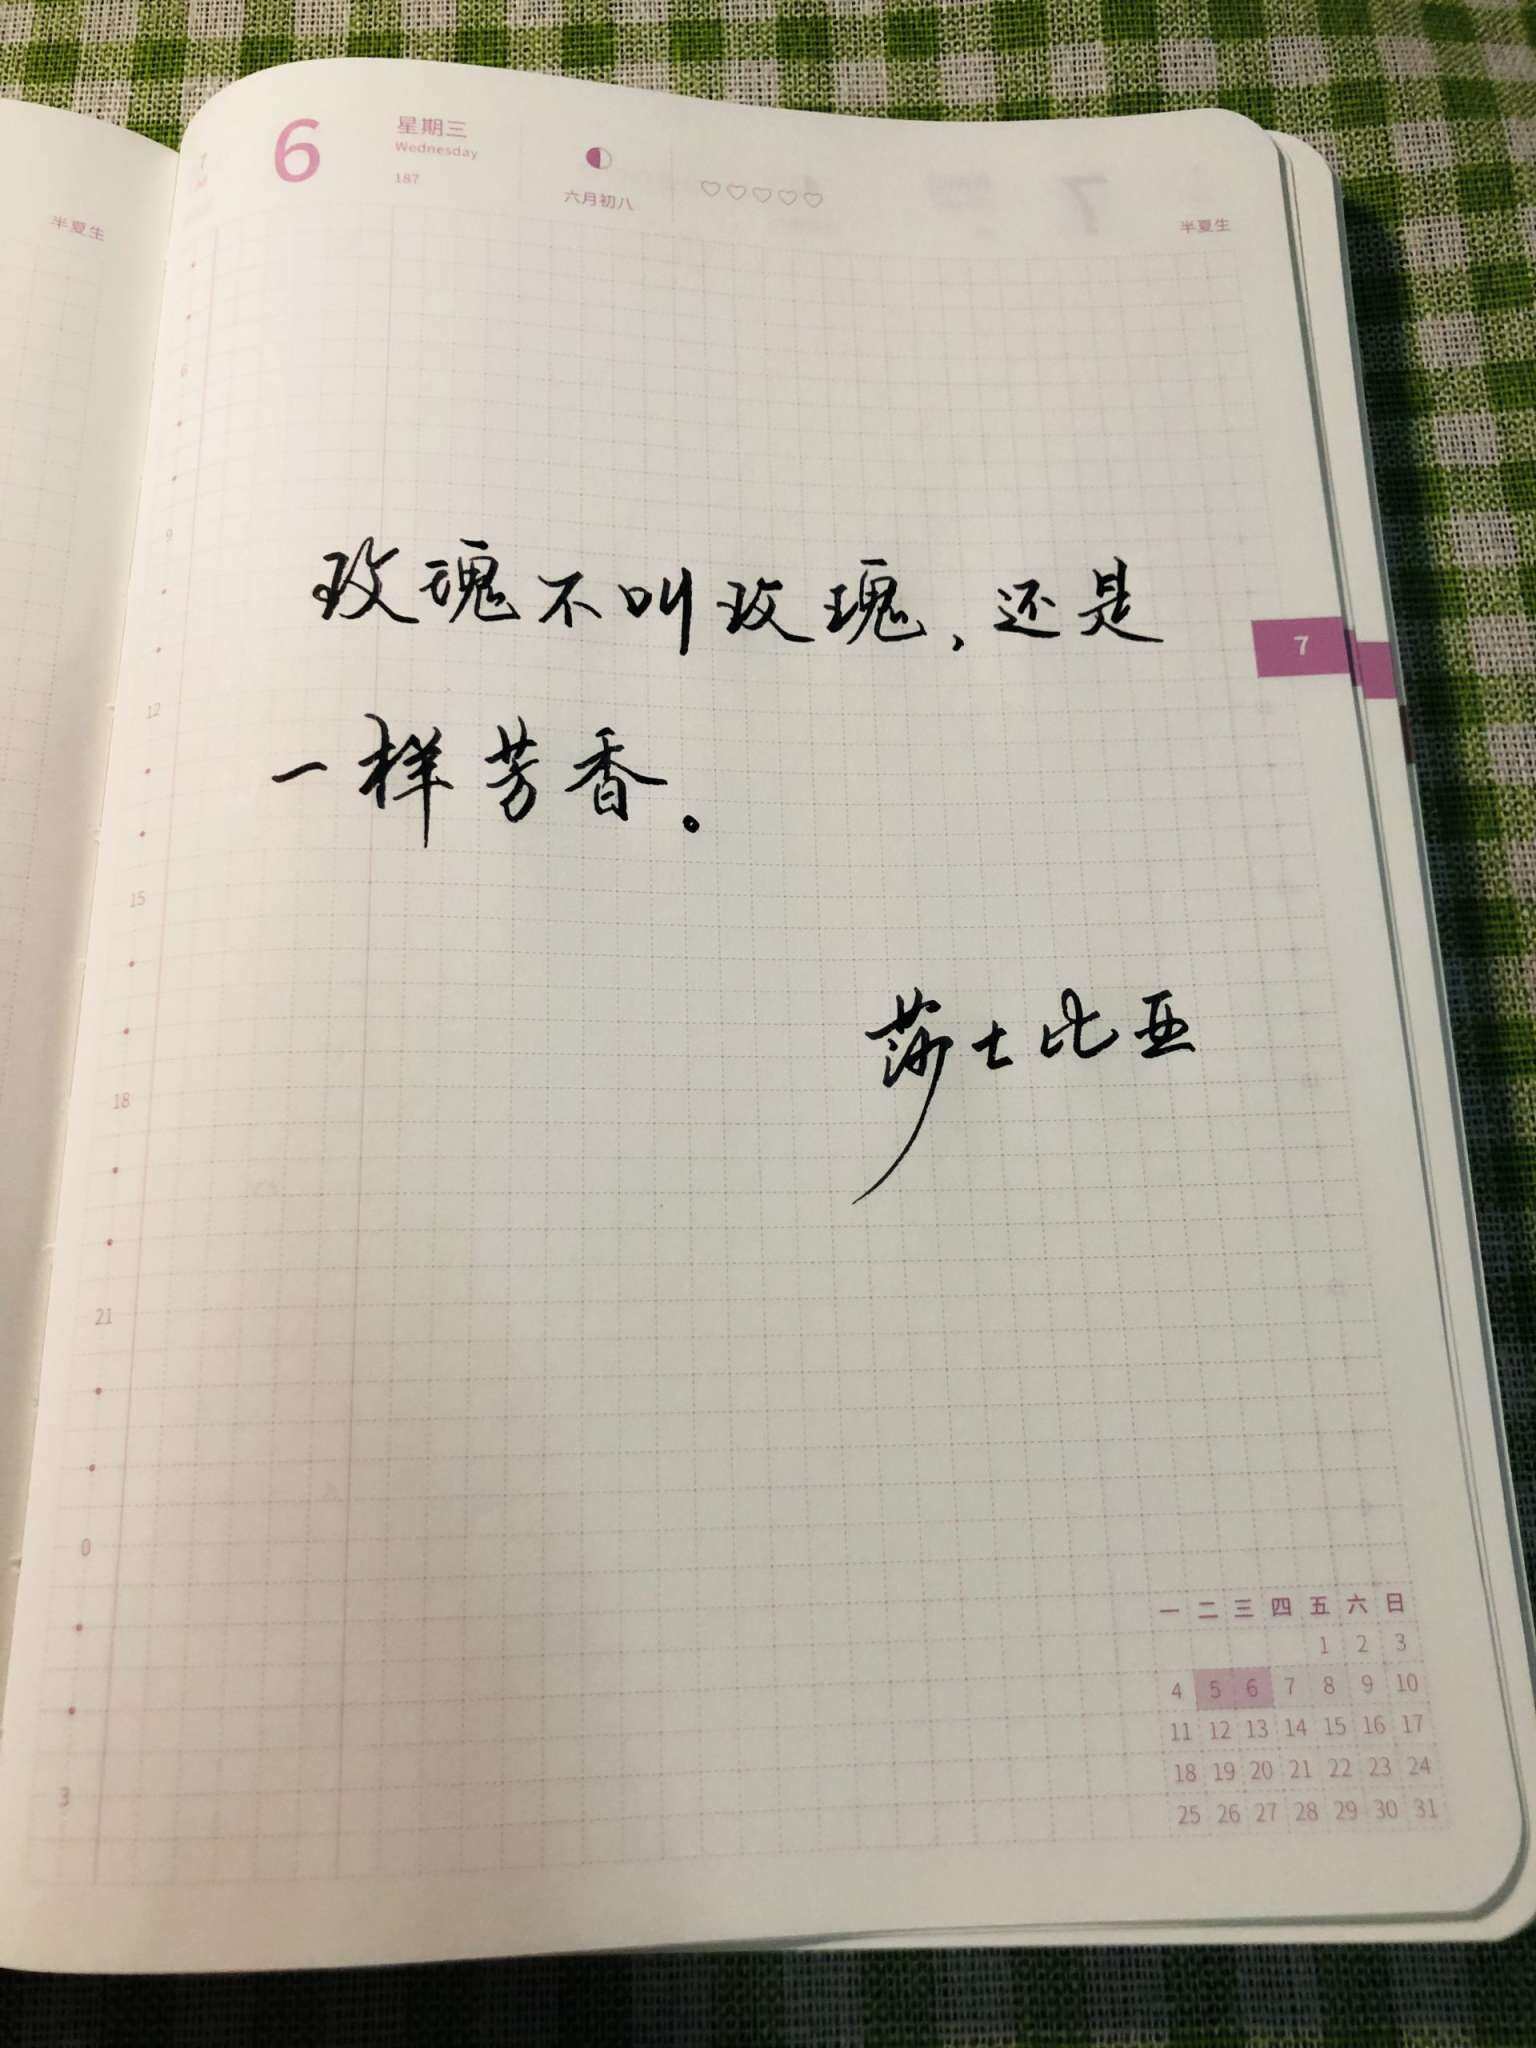 半夏生
6
星期三
Wednesday
187
六月初八
半夏生
6
9
12
15
18
21
0
3
玫瑰不叫玫瑰，还是
一样芳香。
莎士比亚
7
一 二 三 四 五 六 日
1 2 3
4 5 6 7 8 9 10
11 12 13 14 15 16 17
18 19 20 21 22 23 24
25 26 27 28 29 30 31